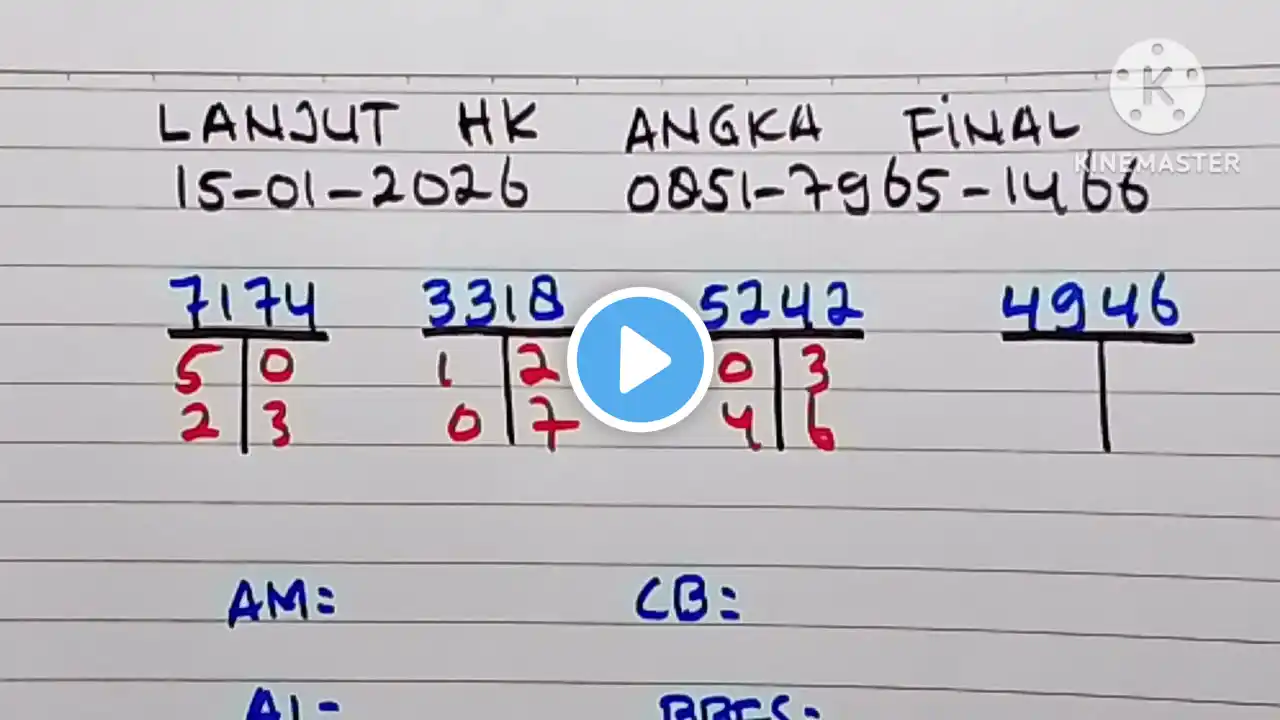 K
KINEMASTER
LANJUT HK ANGKA FINAL
15-01-2026 0851-7965-1466
7174 3318 5242 4946
5 0 1 2 0 3
2 3 0 7 4 6
AM= CB=
AI= BBFS=